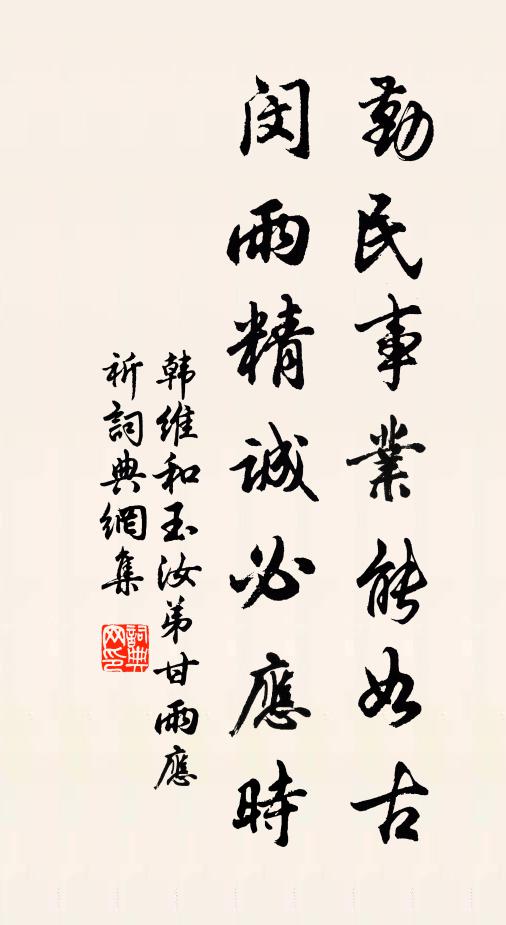 勤民事業能如古
閔雨精誠必應時
韩維和玉汝弟甘雨應
祈詞典網集
詞典网印